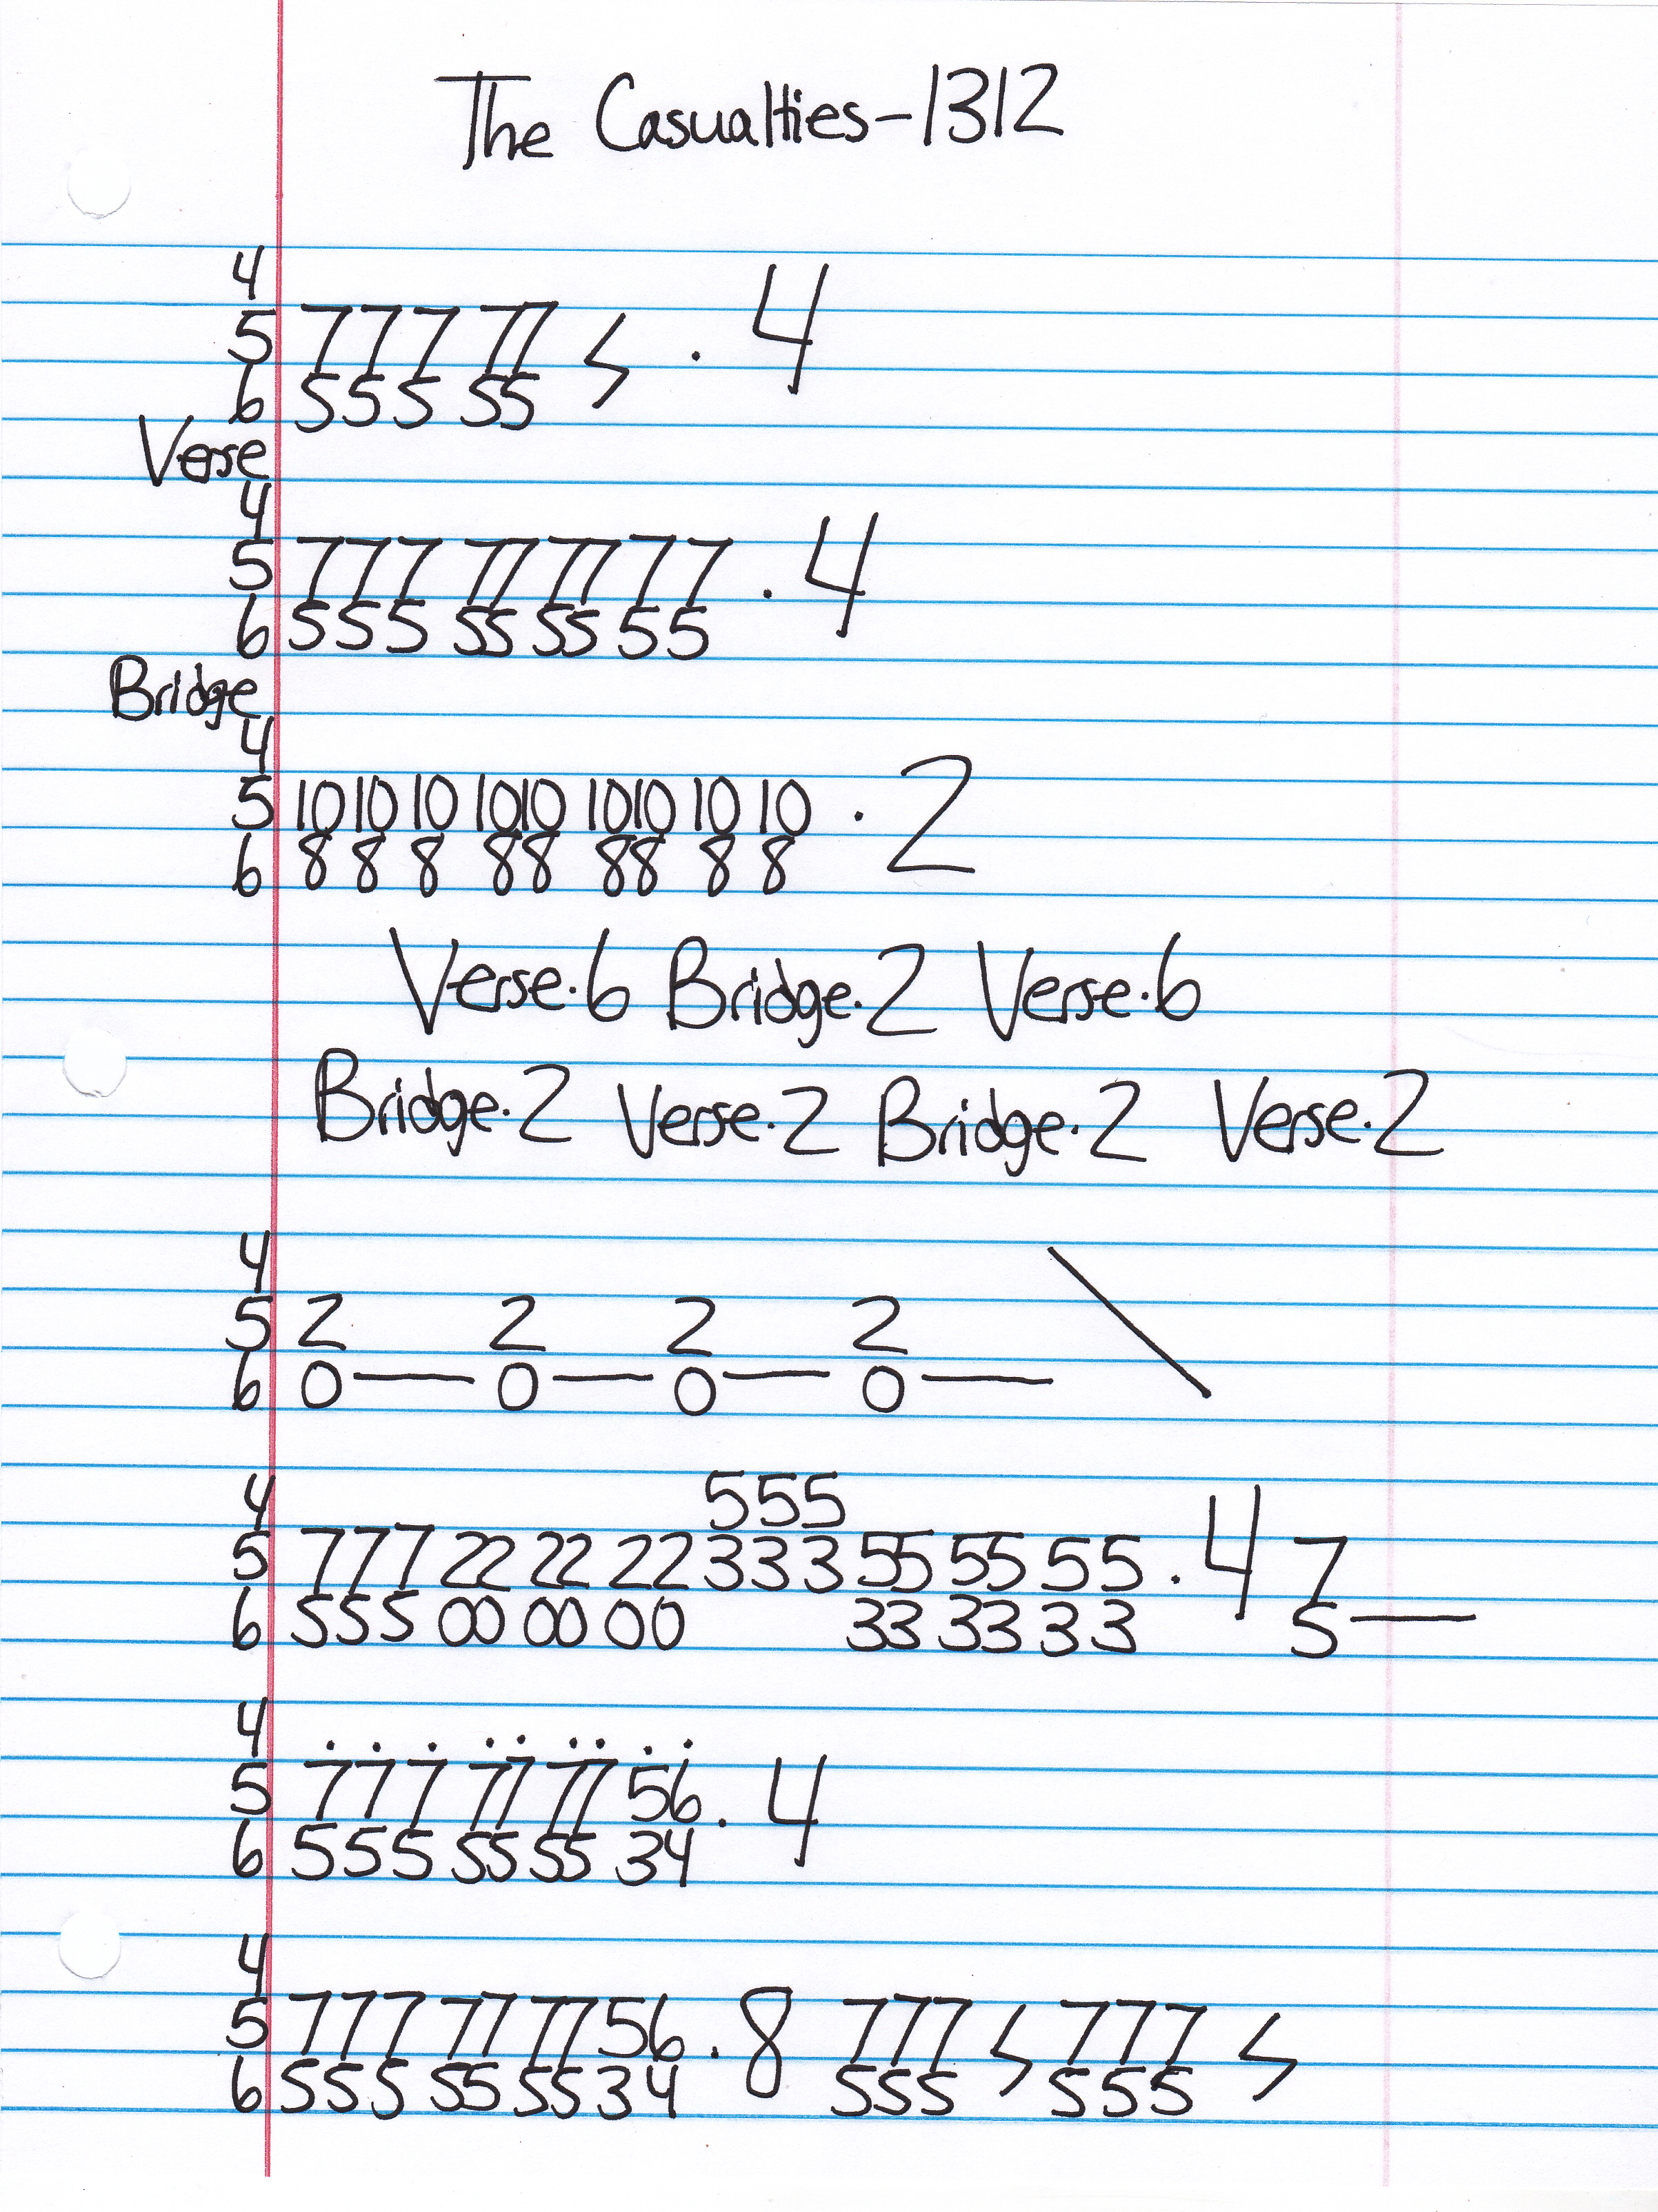 The Casualties-1312
4
5 7 7 7 77 . 4
6 5 5 5 55
Verse
4
5 7 7 7 77 77 7 7 . 4
6 5 5 5 55 55 5 5
Bridge
4
5 10 10 10 1010 1010 10 10 . 2
6 8 8 8 88 88 8 8
Verse.6 Bridge.2 Verse.6
Bridge.2 Verse.2 Bridge.2 Verse.2
4
5 2 2 2 2
6 0— 0— 0— 0—
4 555
5 777 22 22 22 333 55 55 55 . 4 7
6 555 00 00 00 33 33 33 5—
4 . . . .. .. . .
5 7 7 7 77 77 56 . 4
6 5 5 5 55 55 34
4
5 777 77 77 56 . 8 777 777
6 555 55 55 34 555 555